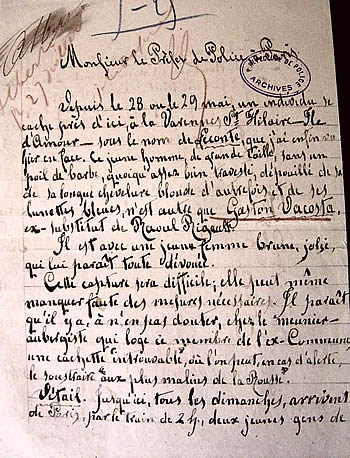 1-9
Monsieur le Préfet de Police
PRÉFECTURE DE POLICE
ARCHIVES
Depuis le 28 ou le 29 mai, un individu se
cache près d'ici, à la Varenne St Hilaire Île
d'Amour — sous le nom de Leconte, que j'ai enfin vu
hier en face. Ce jeune homme, de grande taille, sans un
poil de barbe, quoique assez bien travesti, dépouillé de sa
de sa longue chevelure blonde d'autrefois et de ses
lunettes bleues, n'est autre que Gaston Dacosta,
ex-substitut de Raoul Rigault.
Il est avec une jeune femme brune, jolie,
qui lui paraît toute dévouée.
Cette capture sera difficile; elle peut même
manquer faute des mesures nécessaires. Il paraît
qu'il y a, à n'en pas douter, chez le meunier-
aubergiste qui loge ce membre de l'ex-Commune
une cachette introuvable, où l'on peut, en cas d'alerte,
le soustraire "aux plus malins de la Rousse".
Détail. Jusqu'ici, tous les dimanches, arrivent
de Paris, par le train de 2 h, deux jeunes gens de